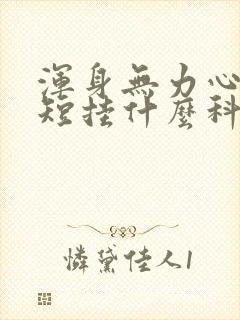 渾身無力心
短挂什麼科
憐黛佳人1